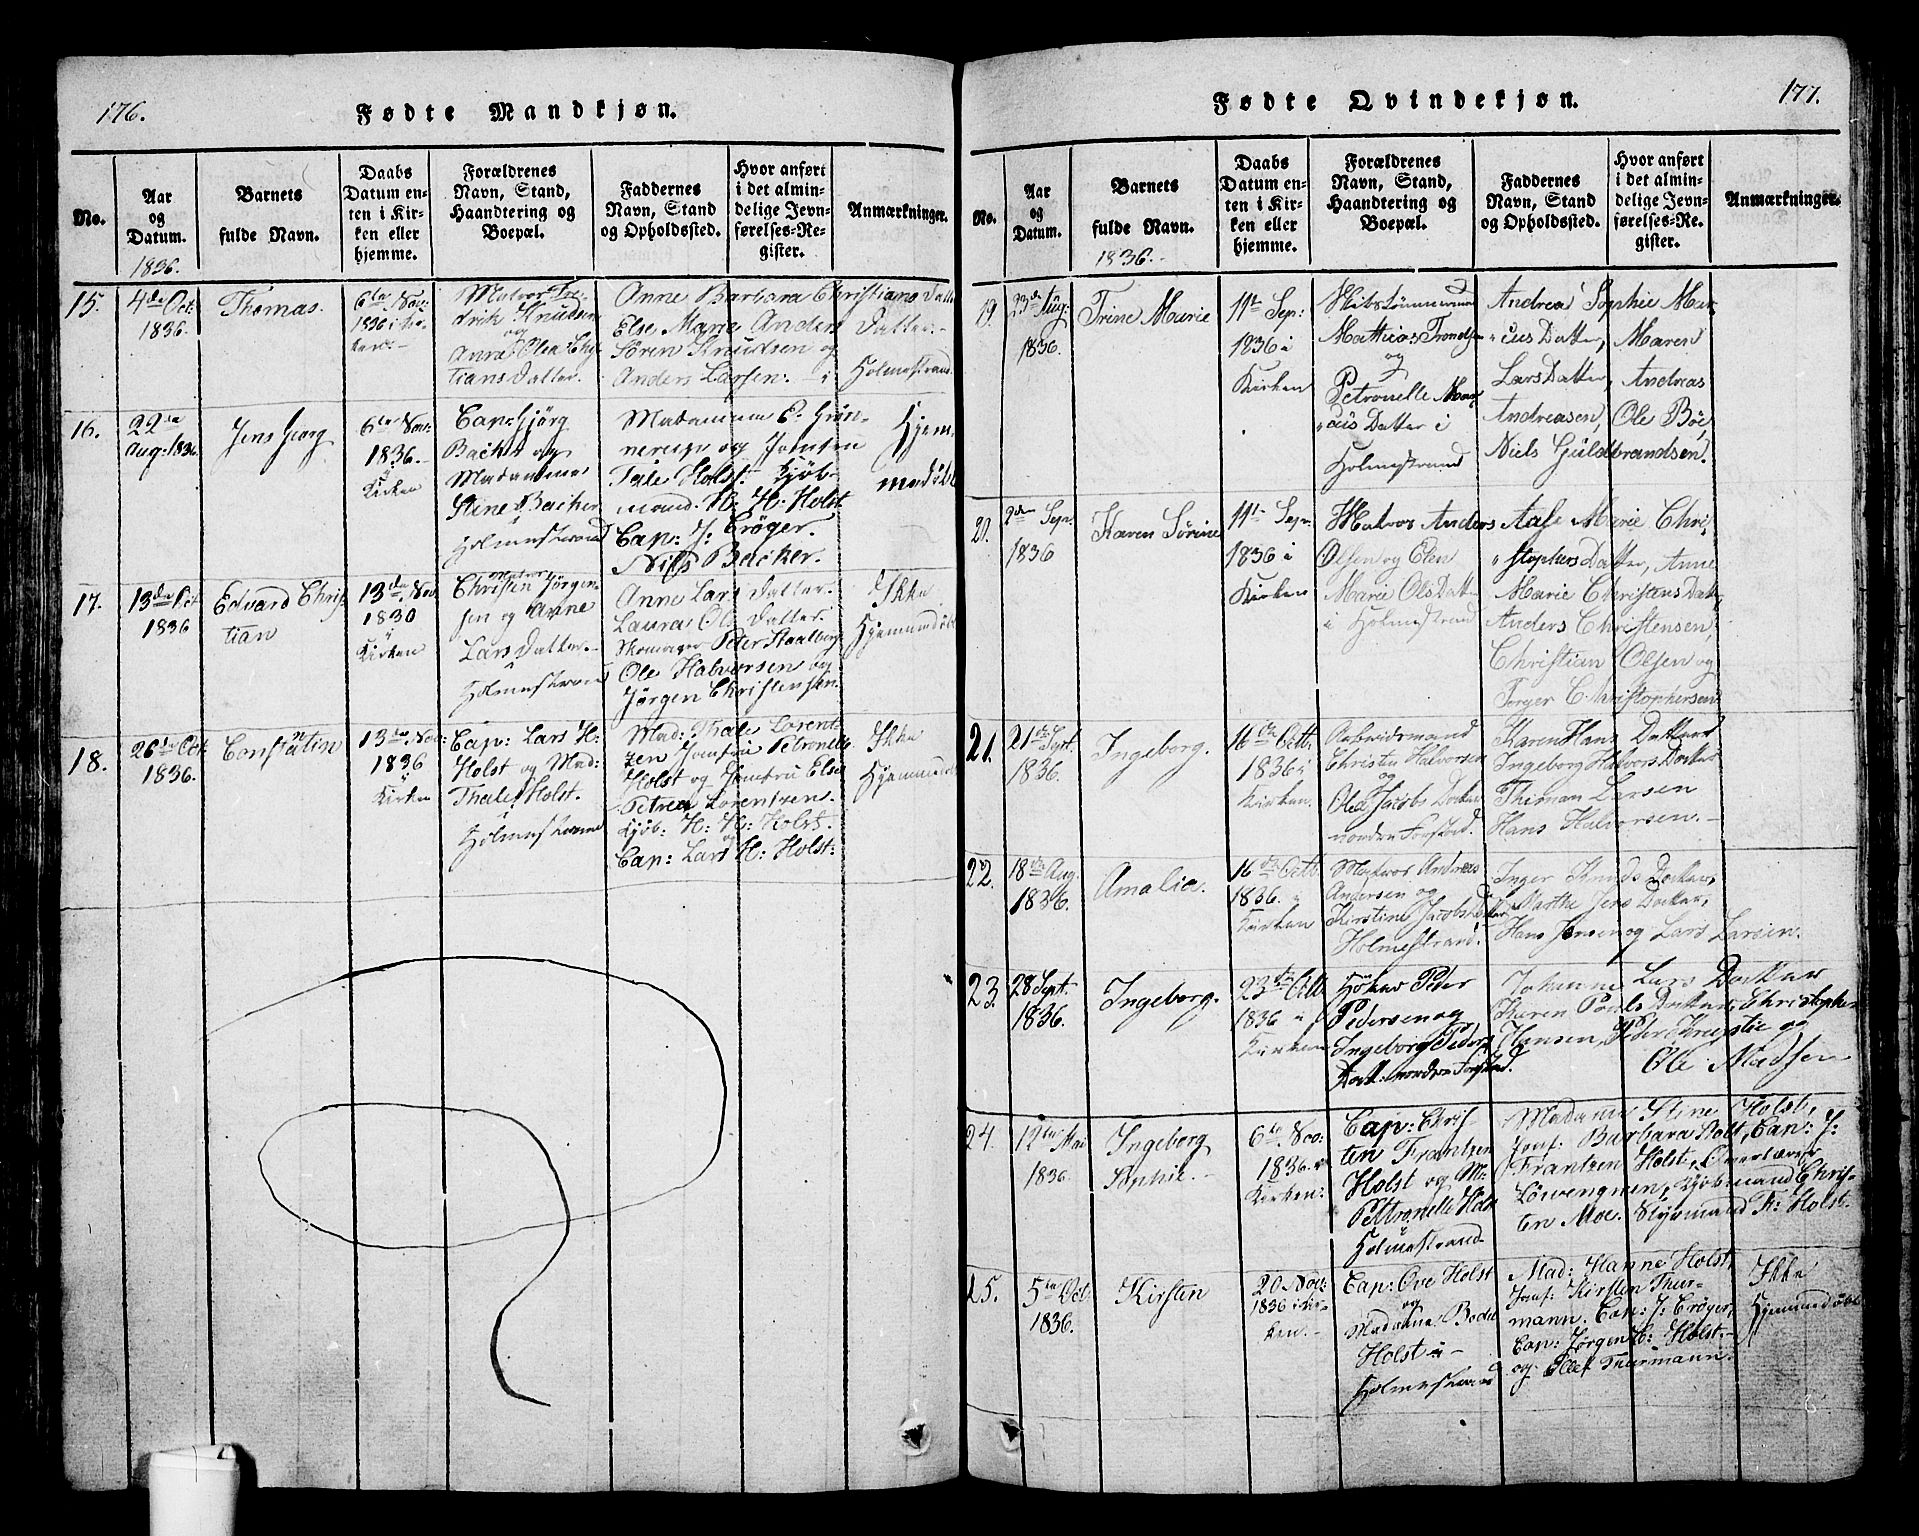 176.
Fødte Mandkjøn.
No.
Aar
og
Datum.
1836.
Barnets
fulde Navn.
Daabs
Datum en-
ten i Kir-
ken eller
hjemme.
Forældrenes
Navn, Stand,
Haandtering og
Boepæl.
Faddernes
Navn, Stand
og Opholdssted.
Hvor anført
i det almin-
delige Jevn-
førelses-Re-
gister.
Anmærkninger.
15.
4de Oct:
1836.
Thomas.
6te Nov:
1836 i Kir-
ken.-
Matros Fre-
drik Knudsen
og
Anne Olea Chri-
tians Datter.
Anne Barbara Christians Datter
Else Marie Anders Datter.-
Søren Knudsen og
Anders Larsen. - i Holmestrand.
16.
22de
Aug: 1836
Jens Georg
6te Nov:
1836.-
i
Kirken
Cap: Gjörg
Backer og
Madamme
Stine Backer
i
Holmestrand
Madamme C. Grön-
nerup og Jomfru
Tale Holst. Kjöb-
mand. H: H: Holst
Cap: J: Cröger.
Nils Backer.
Hjem-
medöbt
17.
13de Oct
1836
Edvard Chris-
tian
13de Nov
1830
i
Kirken
Matros
Christen Jörgen-
sen og Anne
Lars Datter.-
i
Holmestrand
Anne Lars Datter.
Laura Ols Datter.
Skomager Peter Staalberg
Ole Halvorsen og
Jörgen Christensen.
Ikke
Hjemmedöbt
18.
26de Oct
1836.
Constatin
n
13de Nov:
1836
i
Kirken
Cap: Lars H:
Holst og Mad:
Thale Holst.
i
Holmestrand
Mad: Thale Lorent-
zen Jomfru Petronelle
Holst og Jomfru Else
Petrea Lorentzen.
Kjöb: H: H: Holst.
og
Cap: Lars H: Holst:
Ikke
Hjemmedöbt
177.
Fødte Qvindekjøn.
No.
Aar
og
Datum.
Barnets
fulde Navn.
1836.-
Daabs
Datum en-
ten i Kir-
ken eller
hjemme.
Forældrenes
Navn, Stand,
Haandtering og
Boepæl.
Faddernes
Navn, Stand
og Opholdssted.
Hvor anført
i det almin-
delige Jevn-
førelses-Re-
gister.
Anmærkninger.
19.
23de Aug:
1836.
Trine Marie
11te Sep:
1836 i
Kirken
Skibstömmermand
Matthias Trondsen
og
Petronelle Mar-
cus Datter i
Holmestrand
Andrea Sophie Mar-
cus Datter, Maren
Lars Datter, Andreas
Andreasen, Ole Böe,
Niels Guldbrandsen.
20.
2den Sep.
1836
Karen Sörine
11te Sep:
1836 i
Kirken
Matros Anders
Olsen og Elen
Marie Ols Datter
i Holmestrand
Aase Marie Chri-
stophers Datter, Anne
Marie Christens Datt,
Anders Christensen,
Christian Olsen og
Torger Christophersen
21.
21de Sept.
1836.
Ingeborg.
16de Octb.
1836 i
Kirken
Arbeidsmand
Christen Halvorsen
og
Olea Jacobs Datter
nordre Forstad.
Karen Hans Datter
Ingeborg Halvors Datter
Thiman Larsen
Hans Halvorsen.-
22.
18de Aug.
1836.
Amalia.
16de Octb.
1836. i
Kirken
Matros Andreas
Andersen og
Kirstine Jacobs Datter
Holmestrand.
Inger Knuds Datter,
Marthe Jens Datter,
Hans Jensen og Lars Larsen.
23.
28 Sept.
1836.
Ingeborg.
23de Octb
1836 i
Kirken
Höker Peder
Pedersen og
Ingeborg Peders
Datt: nordre Forstad.
Johanne Lars Datter
Karen Pouls Datter, Christopher
Hansen, Peder Knepstie og
Ole Madsen
24.
12te Mai
1836.
Ingeborg
Sophie.-
6te Nov:
1836. i
Kirken:
Cap: Chris-
ten Frantzen
Holst og M:
Pettronelle Holst
i
Holmestrand
Madame Stine Holst,
Jomf: Barbara Holt, Cap: J:
Frantzen Holst, Overlærer
Löwengreen, Kjöbmand Chris-
ten Moe. Styrmand F: Holst.
25.
5te Oct
1836.
Kirsten
20 Nov:
1836 i Kir-
ken.-
Cap: Ove Holst
og
Madame Bodel
Holst i -
Holmestrand
Mad: Hanne Holst
Jomf: Kirsten Thur-
mann. Cap: J: Cröger,
Cap: Jörgen C: Holst.-
og Ollef Thurmann.
Ikke
Hjemmedöbt